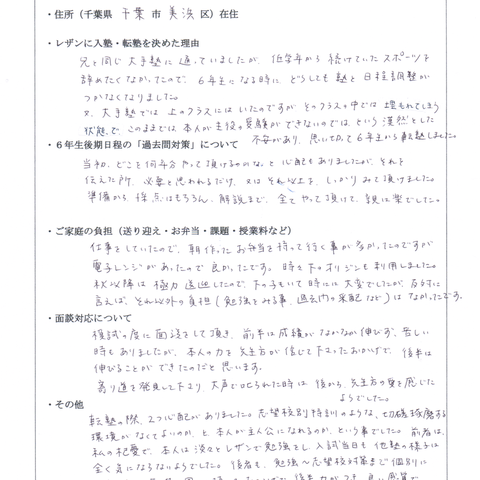 ・住所（千葉県 千葉 市 美浜 区）在住
・レザンに入塾・転塾を決めた理由
兄と同じ大手塾に通っていましたが、低学年から続けていたスポーツを
辞めたくなかったので、6年生になる時に、どうしても塾と日程調整が
つかなくなりました。
又、大手塾では上のクラスにはいたのですがそのクラスの中では埋もれてしまう
状態で、このままでは本人が主役の受験ができないのでは、という漠然とした
不安があり、思い切って6年生から転塾しました。
・６年生後期日程の「過去問対策」について
当初、どこを何年分やって頂けるのかな、と心配もありましたが、それを
伝えた所、必要と思われるだけ、又はそれ以上を、しっかりみて頂けました。
準備から、採点はもちろん、解説まで、全てやって頂けて、親は楽でした。
・ご家庭の負担（送り迎え・お弁当・課題・授業料など）
仕事をしていたので、朝作ったお弁当を持って行く事が多かったのですが
電子レンジがあったので良かったです。時々下のオリジンも利用しました。
秋以降は極力送迎したので、下の子もいて時には大変でしたが、反対に
言えば、それ以外の負担（勉強をみる事、過去問の采配など）はなかったです。
・面談対応について
模試の度に面談をして頂き、前半は成績がなかなか伸びず、苦しい
時もありましたが、本人の力を先生方が信じて下さったおかげで、後半は
伸びることができたのだと思います。
寄り道を発見して下さり、大声で叱られた時は後から、先生方の愛を感じた
ようでした。
・その他
転塾の際、2つ心配がありました。志望校別特訓のような、切磋琢磨する
環境がなくてよいのか、と本人が主人公になれるのか、という事でした。前者は、
私の杞憂で、本人は淡々とレザンで勉強をし、入試当日も他塾の様子は
全く気にならないようでした。後者も、勉強〜志望校対策まで個別に